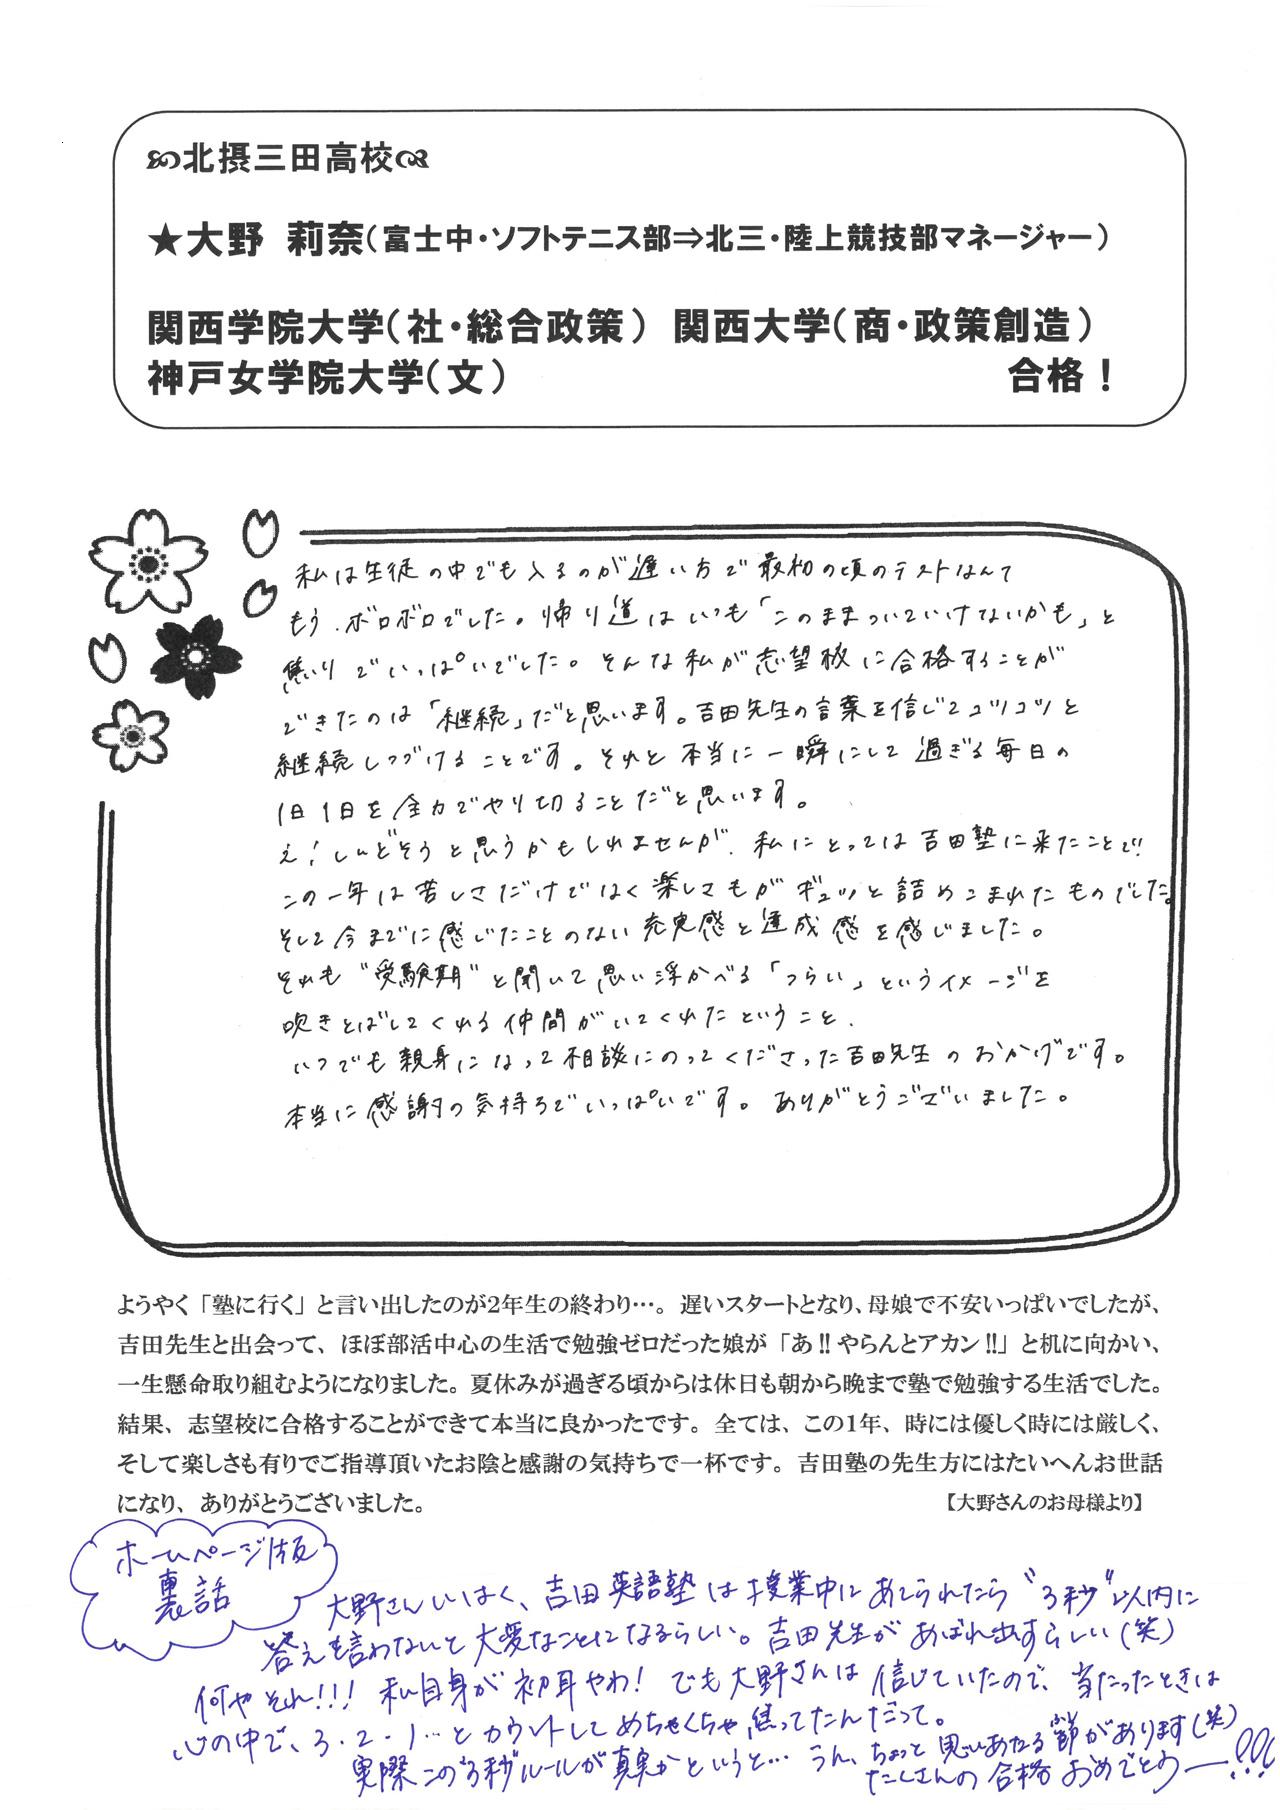 北摂三田高校
★大野 莉奈（富士中・ソフトテニス部⇒北三・陸上競技部マネージャー）
関西学院大学（社・総合政策） 関西大学（商・政策創造）
神戸女学院大学（文） 合格！
私は生徒の中でも入るのが遅い方で最初の頃のテストなんて
もう、ボロボロでした。帰り道はいつも「このままついていけないかも」と
焦りでいっぱいでした。そんな私が志望校に合格することが
できたのは「継続」だと思います。吉田先生の言葉を信じてコツコツと
継続しつづけることです。それと本当に一瞬にして過ぎる毎日の
1日1日を全力でやり切ることだと思います。
え！しんどそうと思うかもしれませんが、私にとっては吉田塾に来たことで
この一年は苦しさだけではく楽しさもがギュッと詰めこまれたものでした。
そして今までに感じたことのない充実感と達成感を感じました。
それも"受験期"と聞いて思い浮かべる「つらい」というイメージを
吹きとばしてくれる仲間がいてくれたということ、
いつでも親身になって相談にのってくださった吉田先生のおかげです。
本当に感謝の気持ちでいっぱいです。ありがとうございました。
ようやく「塾に行く」と言い出したのが2年生の終わり…。遅いスタートとなり、母娘で不安いっぱいでしたが、
吉田先生と出会って、ほぼ部活中心の生活で勉強ゼロだった娘が「あ!!やらんとアカン!!」と机に向かい、
一生懸命取り組むようになりました。夏休みが過ぎる頃からは休日も朝から晩まで塾で勉強する生活でした。
結果、志望校に合格することができて本当に良かったです。全ては、この1年、時には優しく時には厳しく、
そして楽しさも有りでご指導頂いたお陰と感謝の気持ちで一杯です。吉田塾の先生方にはたいへんお世話
になり、ありがとうございました。 【大野さんのお母様より】
ホームページ版
裏話
大野さんいはく、吉田英語塾は授業中にあてられたら"3秒"以内に
答えを言わないと大変なことになるらしい。吉田先生があばれ出すらしい（笑）
何やそれ!!! 私自身が初耳やわ！でも大野さんは信じていたので、当たったときは
心の中で、3・2・1…とカウントしてめちゃくちゃ焦ってたんだって。
実際この"3秒"ルールが真実かというと…うん、ちょっと思いあたる節があります（笑）
たくさんの合格おめでとうー!!!